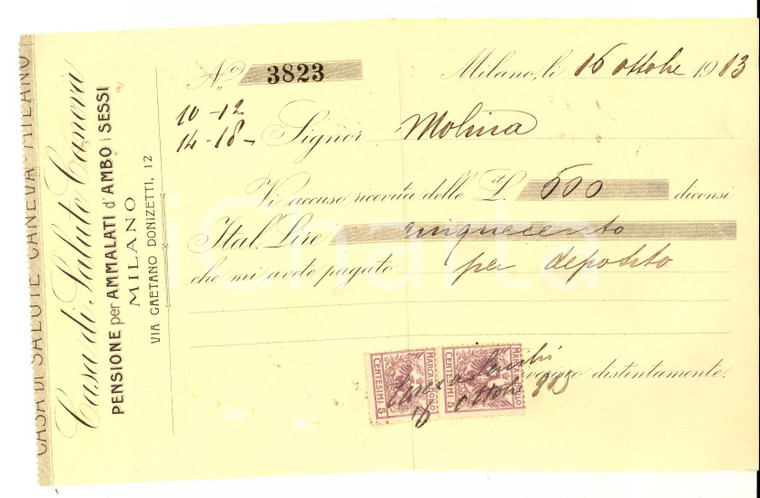 CASA DI SALUTE CANEVA - MILANO
Casa di Salute Caneva
PENSIONE per AMMALATI d'AMBO i SESSI
MILANO
VIA GAETANO DONIZETTI, 12
No 3823 Milano, li 16 ottobre 1913
10-12
14-18- Signor Molina
Vi accuso ricevuta delle L. 500 diconsi
Ital. Lire cinquecento
che mi avete pagato per deposito
distintamente.
MARCA DA BOLLO
CENTESIMI 5
MARCA DA BOLLO
CENTESIMI 5
ottobre 913